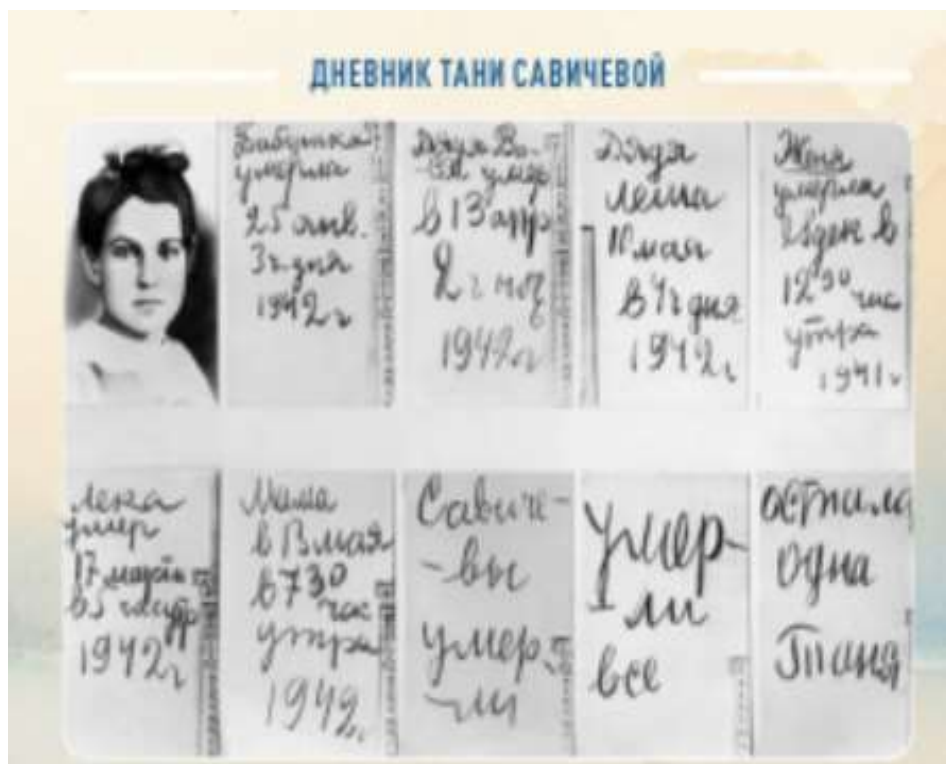 ДНЕВНИК ТАНИ САВИЧЕВОЙ
Бабушка
умерла
25 янв.
3ч. дня
1942 г
Дядя Ва-
-ся умер
в 13 апр
2 ч ноч
1942 г
Дядя
Леша
10 мая
в 4 ч дня
1942 г
Женя
умерла
28 дек в
12 30 час
утра
1941 г
Лека
умер
17 марта
в 5 час утр
1942 г
Мама
в 13 мая
в 7 30
час
утра
1942 г
Савиче-
-вы
умер-
-ли
Умер-
ли
все
Осталась
одна
Таня